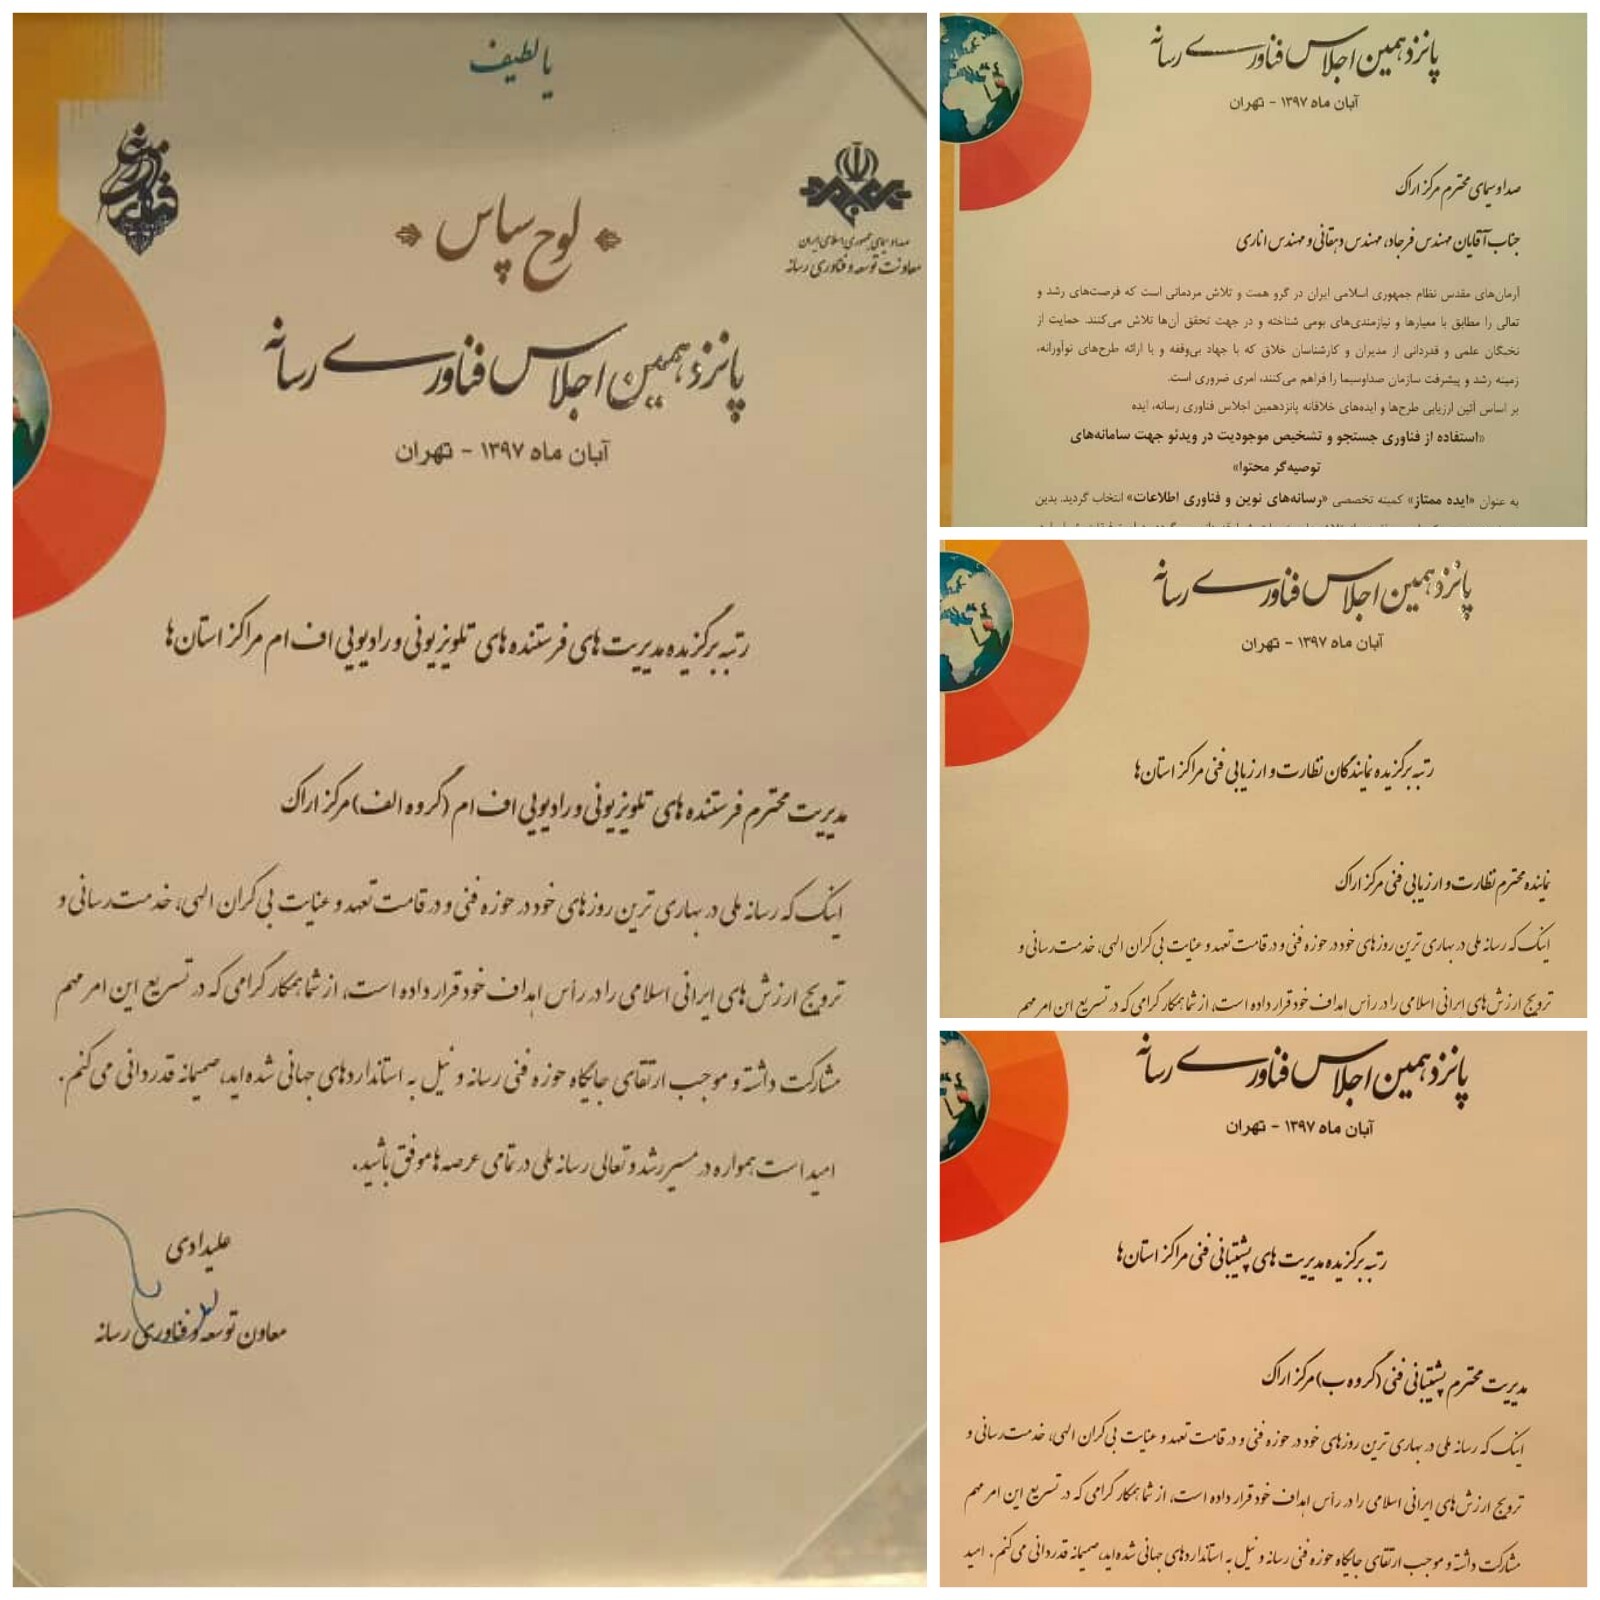 یا لطیف
صدا و سیمای جمهوری اسلامی ایران
معاونت توسعه و فناوری رسانه
لوح سپاس
پانزدهمین اجلاس فناوری رسانه
آبان ماه ۱۳۹۷ - تهران
رتبه برگزیده مدیریت های فرستنده های تلویزیونی و رادیویی اف ام مراکز استان ها
مدیریت محترم فرستنده های تلویزیونی و رادیویی اف ام (گروه الف) مرکز اراک
اینک که رسانه ملی در بهاری ترین روزهای خود در حوزه فنی و در قامت تعهد و عنایت بی کران الهی، خدمت رسانی و
ترویج ارزش های ایرانی اسلامی را در رأس اهداف خود قرار داده است، از شما همکار گرامی که در تسریع این امر مهم
مشارکت داشته و موجب ارتقای جایگاه حوزه فنی رسانه و نیل به استانداردهای جهانی شده اید، صمیمانه قدردانی می کنم.
امید است همواره در مسیر رشد و تعالی رسانه ملی در تمامی عرصه ها موفق باشید.
علیدادی
معاون توسعه و فناوری رسانه
پانزدهمین اجلاس فناوری رسانه
آبان ماه ۱۳۹۷ - تهران
صدا و سیمای محترم مرکز اراک
جناب آقایان مهندس فرجاد، مهندس دهقانی و مهندس اناری
آرمان‌های مقدس نظام جمهوری اسلامی ایران در گرو همت و تلاش مردمانی است که فرصت‌های رشد و
تعالی را مطابق با معیارها و نیازمندی‌های بومی شناخته و در جهت تحقق آن‌ها تلاش می‌کنند. حمایت از
نخبگان علمی و قدردانی از مدیران و کارشناسان خلاق که با جهاد بی‌وقفه و با ارائه طرح‌های نوآورانه،
زمینه رشد و پیشرفت سازمان صداوسیما را فراهم می‌کنند، امری ضروری است.
بر اساس آئین ارزیابی طرح‌ها و ایده‌های خلاقانه پانزدهمین اجلاس فناوری رسانه، ایده
«استفاده از فناوری جستجو و تشخیص موجودیت در ویدئو جهت سامانه‌های
توصیه‌گر محتوا»
به عنوان «ایده ممتاز» کمیته تخصصی «رسانه‌های نوین و فناوری اطلاعات» انتخاب گردید. بدین
پانزدهمین اجلاس فناوری رسانه
آبان ماه ۱۳۹۷ - تهران
رتبه برگزیده نمایندگان نظارت و ارزیابی فنی مراکز استان ها
نماینده محترم نظارت و ارزیابی فنی مرکز اراک
اینک که رسانه ملی در بهاری ترین روزهای خود در حوزه فنی و در قامت تعهد و عنایت بی کران الهی، خدمت رسانی و
ترویج ارزش های ایرانی اسلامی را در رأس اهداف خود قرار داده است، از شما همکار گرامی که در تسریع این امر مهم
پانزدهمین اجلاس فناوری رسانه
آبان ماه ۱۳۹۷ - تهران
رتبه برگزیده مدیریت های پشتیبانی فنی مراکز استان ها
مدیریت محترم پشتیبانی فنی (گروه ب) مرکز اراک
اینک که رسانه ملی در بهاری ترین روزهای خود در حوزه فنی و در قامت تعهد و عنایت بی کران الهی، خدمت رسانی و
ترویج ارزش های ایرانی اسلامی را در رأس اهداف خود قرار داده است، از شما همکار گرامی که در تسریع این امر مهم
مشارکت داشته و موجب ارتقای جایگاه حوزه فنی رسانه و نیل به استانداردهای جهانی شده اید، صمیمانه قدردانی می کنم. امید